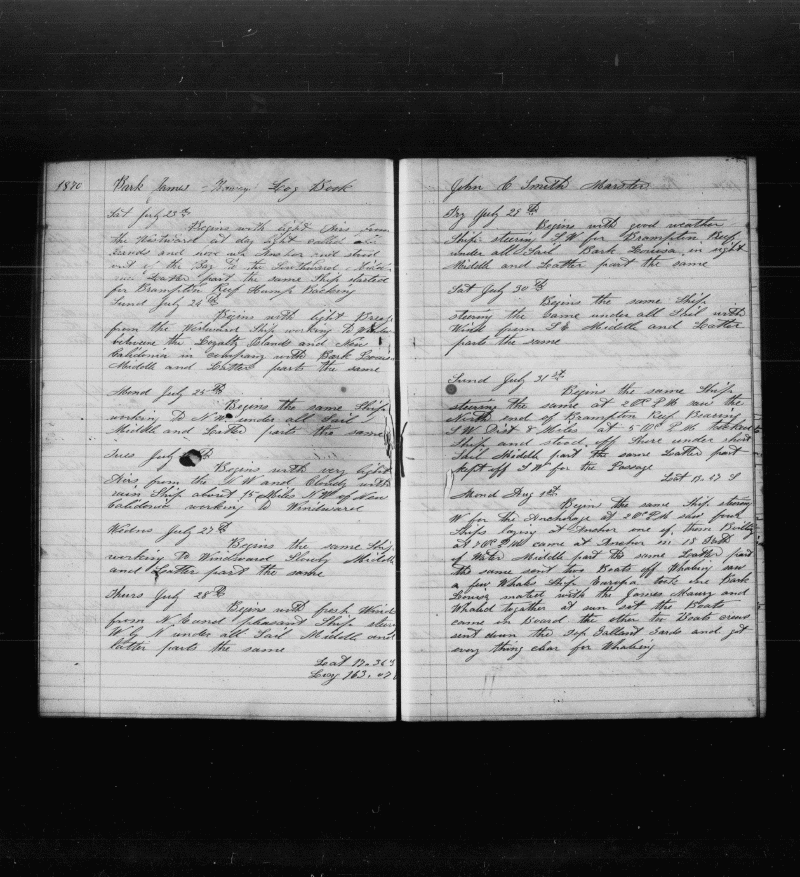 1870 Bark James Maury Log Book
Sat July 23rd
Begins with light Airs from
the Westward at day light called all
hands and hove up Anchor and stood
out of the Bay to the Southward
Latter part the same Ship started
for Brampton Reef Hump Backing
Sund July 24th
Begins with light Breeze
from the Westward Ship working to
between the Loyalty Islands and New
Calidonia in company with Bark Louisa
Middle and Latter parts the same
Mond July 25th
Begins the same Ship
working to N W under all Sail
Middle and Latter parts the same
Tues July
Begins with very light
Airs from the N W and Cloudy with
rain Ship about 15 Miles NW of New
Calidonia working to Windward
Wednes July 27th
Begins the same Ship
working to Windward Slowly Middle
and Latter part the same
Thurs July 28th
Begins with fresh Wind
from N E and pleasant Ship steering
W by N under all Sail Middle and
latter parts the same
Lat 19.36 S
Log 163.
John C Smith Marster
Fry July 29th
Begins with good weather
Ship steering S W for Brampton Reef
under all Sail Bark Louisa in sight
Middle and Latter part the same
Sat July 30th
Begins the same Ship
steering the Came under all Sail with
Wind from S E Middle and Latter
parts the same
Sund July 31st
Begins the same Ship
steering the same at 2 Oc P M saw the
North end of Brampton Reef Bearing
S W Dist 8 Miles at 5 Oc P M tacked
Ship and stood off Shore under short
Sail Middle part the same Latter part
kept off S W for the Passage
Lat 19.27 S
Mond Aug 1st
Begins the same Ship steering
W for the Anchorage at 2 Oc P M saw four
Ships laying at Anchor one of them Boiling
at 5 Oc P M came at Anchor in 18 Feet
of Water Middle part the same Latter part
the same sent two Boats off Whaling saw
a few Whales Ship Europa took one Bark
Louisa mated with the James Maury and
Whaled together at sun set the Boats
came on Board the other two Boats crews
sent down the Top Gallant Yards and got
every thing clear for Whaling